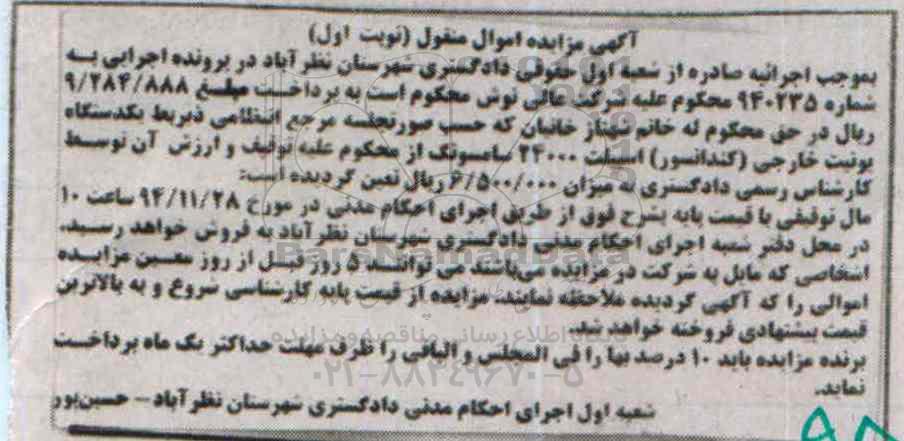 آگهی مزایده اموال منقول (نوبت اول)
بموجب اجرائیه صادره از شعبه اول حقوقی دادگستری شهرستان نظرآباد در پرونده اجرایی به
شماره ۹۴۰۲۳۵ محکوم علیه شرکت عالی نوش محکوم است به پرداخت مبلغ ۹/۲۸۴/۸۸۸
ریال در حق محکوم له خانم شهناز خانبان که حسب صورتجلسه مرجع انتظامی ذیربط یکدستگاه
یونیت خارجی (کندانسور) اسپلت ۲۴۰۰۰ سامسونگ از محکوم علیه توقیف و ارزش آن توسط
کارشناس رسمی دادگستری به میزان ۶/۵۰۰/۰۰۰ ریال تعین گردیده است:
مال توقیفی با قیمت پایه بشرح فوق از طریق اجرای احکام مدنی در مورخ ۹۴/۱۱/۲۸ ساعت ۱۰
در محل دفتر شعبه اجرای احکام مدنی دادگستری شهرستان نظرآباد به فروش خواهد رسید.
اشخاصی که مایل به شرکت در مزایده می‌باشند می توانند ۵ روز قبل از روز معین مزایده
اموالی را که آگهی گردیده ملاحظه نمایند. مزایده از قیمت پایه کارشناسی شروع و به بالاترین
قیمت پیشنهادی فروخته خواهد شد.
برنده مزایده باید ۱۰ درصد بها را فی المجلس و الباقی را ظرف مهلت حداکثر یک ماه پرداخت
نماید.
شعبه اول اجرای احکام مدنی دادگستری شهرستان نظرآباد - حسین‌پور
ParsNamadData
پایگاه اطلاع رسانی مناقصه و مزایده
۰۲۱-۸۸۳۴۹۶۷۰-۵